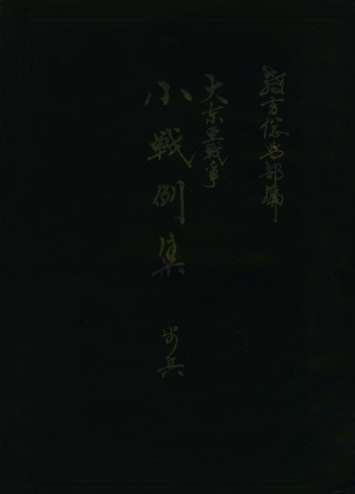 教育総監部編
大東亜戦争
小戦例集
歩兵